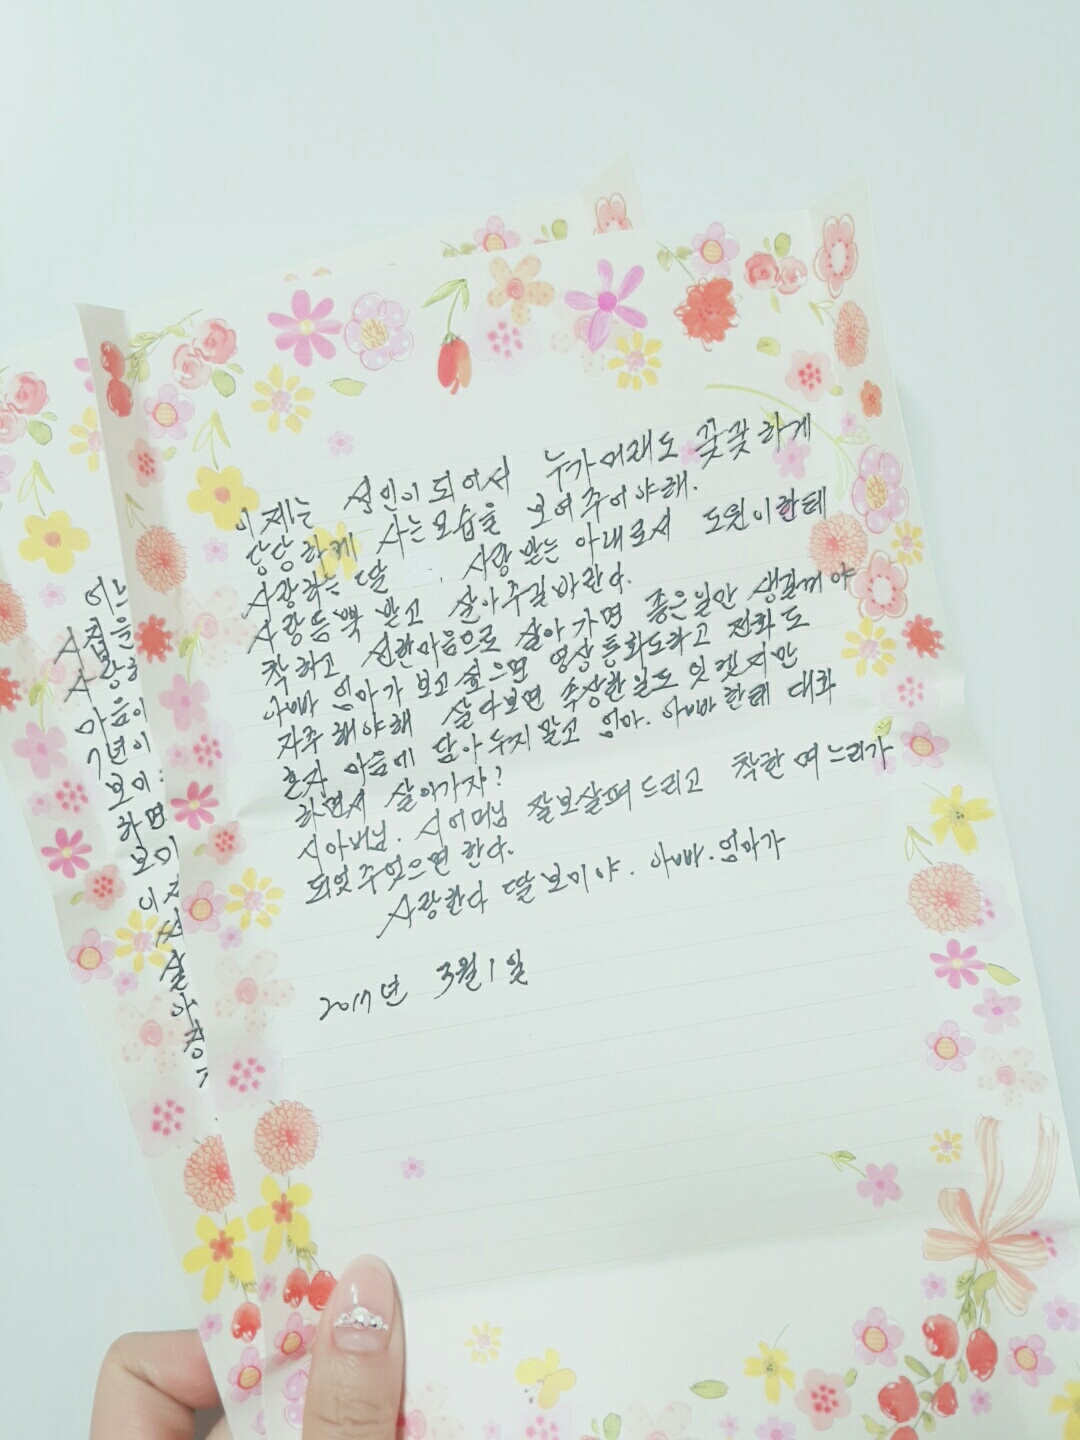 이제는 성인이 되어서 누가머래도 꿋꿋하게
당당하게 사는모습을 보여주어야해.
사랑하는 딸 . 사랑받는 아내로서 도원이한테
사랑듬뿍 받고 살아주길바란다.
착하고 선한마음으로 살아가면 좋은일만 생길꺼야
아빠 엄마가 보고싶으면 영상통화도하고 전화도
자주해야해 살다보면 속상한일도 잇겟지만
혼자 마음에 담아두지말고 엄마. 아빠한테 대화
하면서 살아가자?
시아버님. 시어머님 잘보살펴드리고 착한 며느리가
되엇주엇으면 한다.
사랑한다 딸보미야. 아빠.엄마가
2017년 3월1일
어느
시집을
사랑
마음이
7년이
보미
하면
보미
이제
서
살
아